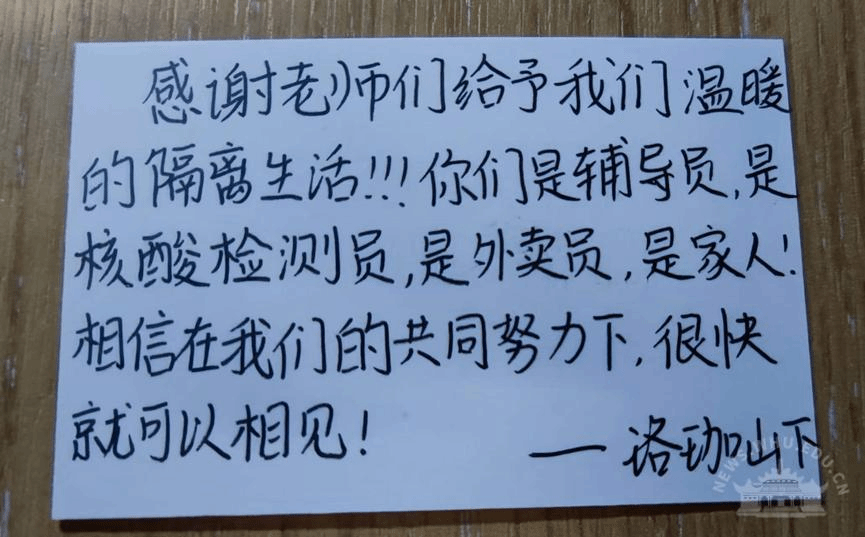 感谢老师们给予我们温暖
的隔离生活!!!你们是辅导员,是
核酸检测员,是外卖员,是家人!
相信在我们的共同努力下,很快
就可以相见!
——珞珈山下
NEWS.WHU.EDU.CN